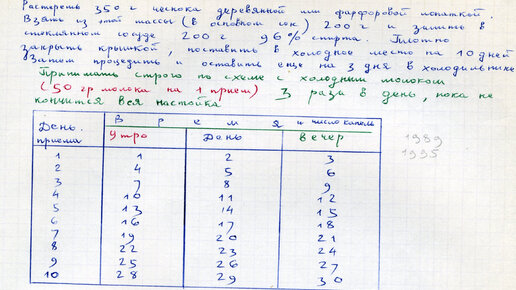 Растереть 350 г чеснока деревянной или фарфоровой лопаткой.
Взять из этой массы (в основном сок) 200 г и залить в
стеклянном сосуде 200 г 96% спирта. Плотно
закрыть крышкой, поставить в холодное место на 10 дней
Затем процедить и оставить еще на 3 дня в холодильнике
Принимать строго по схеме с холодным молоком
(50 гр молока на 1 прием) 3 раза в день, пока не
кончится вся настойка
День приема | Время и число капель
Утро | День | вечер
1 1 2 3
2 4 5 6
3 7 8 9
4 10 11 12
5 13 14 15
6 16 17 18
7 19 20 21
8 22 23 24
9 25 26 27
10 28 29 30
1989
1995